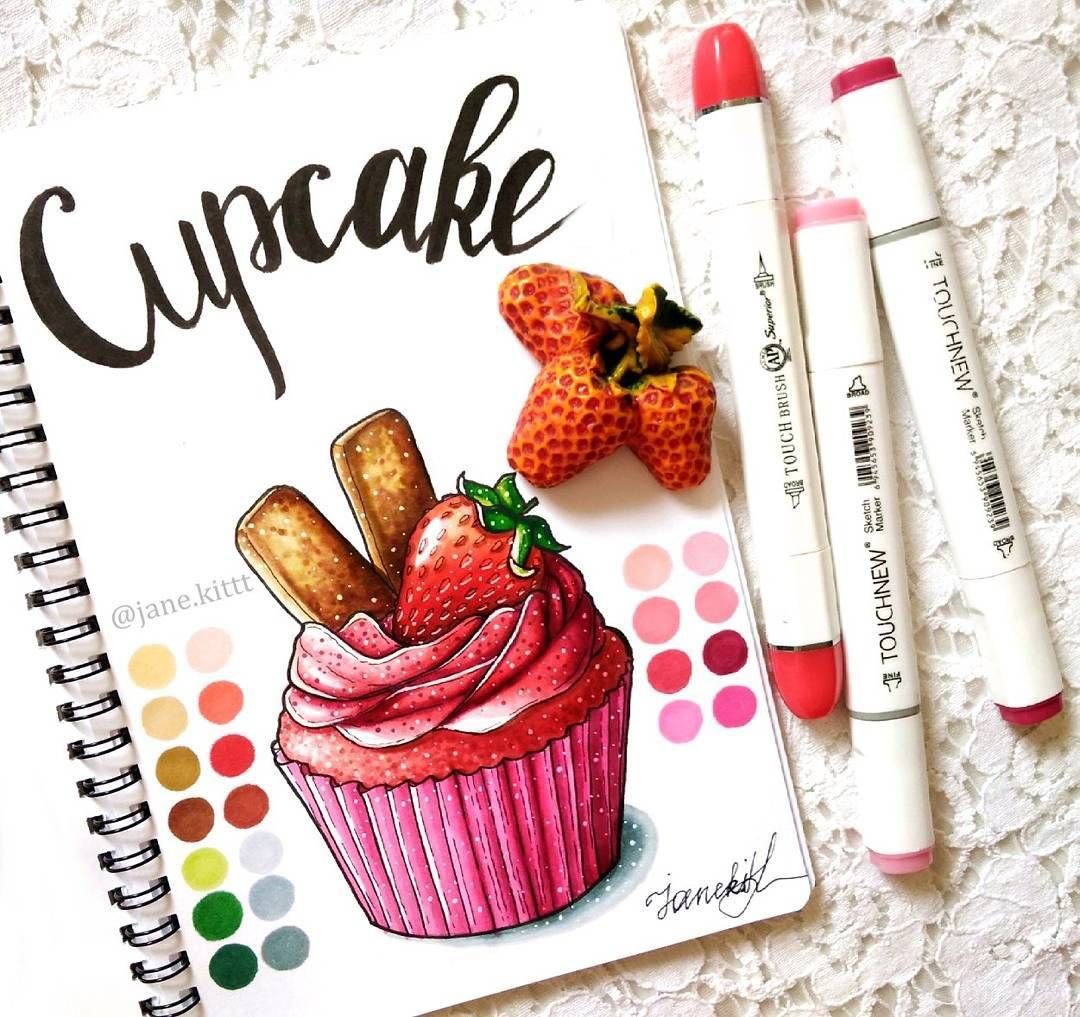 Cupcake
@jane.kittt
janekitt
BROAD TOUCH BRUSH AP Superior® BRUSH
FINE TOUCHNEW® Sketch Marker BROAD
6945653909239
TOUCHNEW® Sketch Marker
BROAD